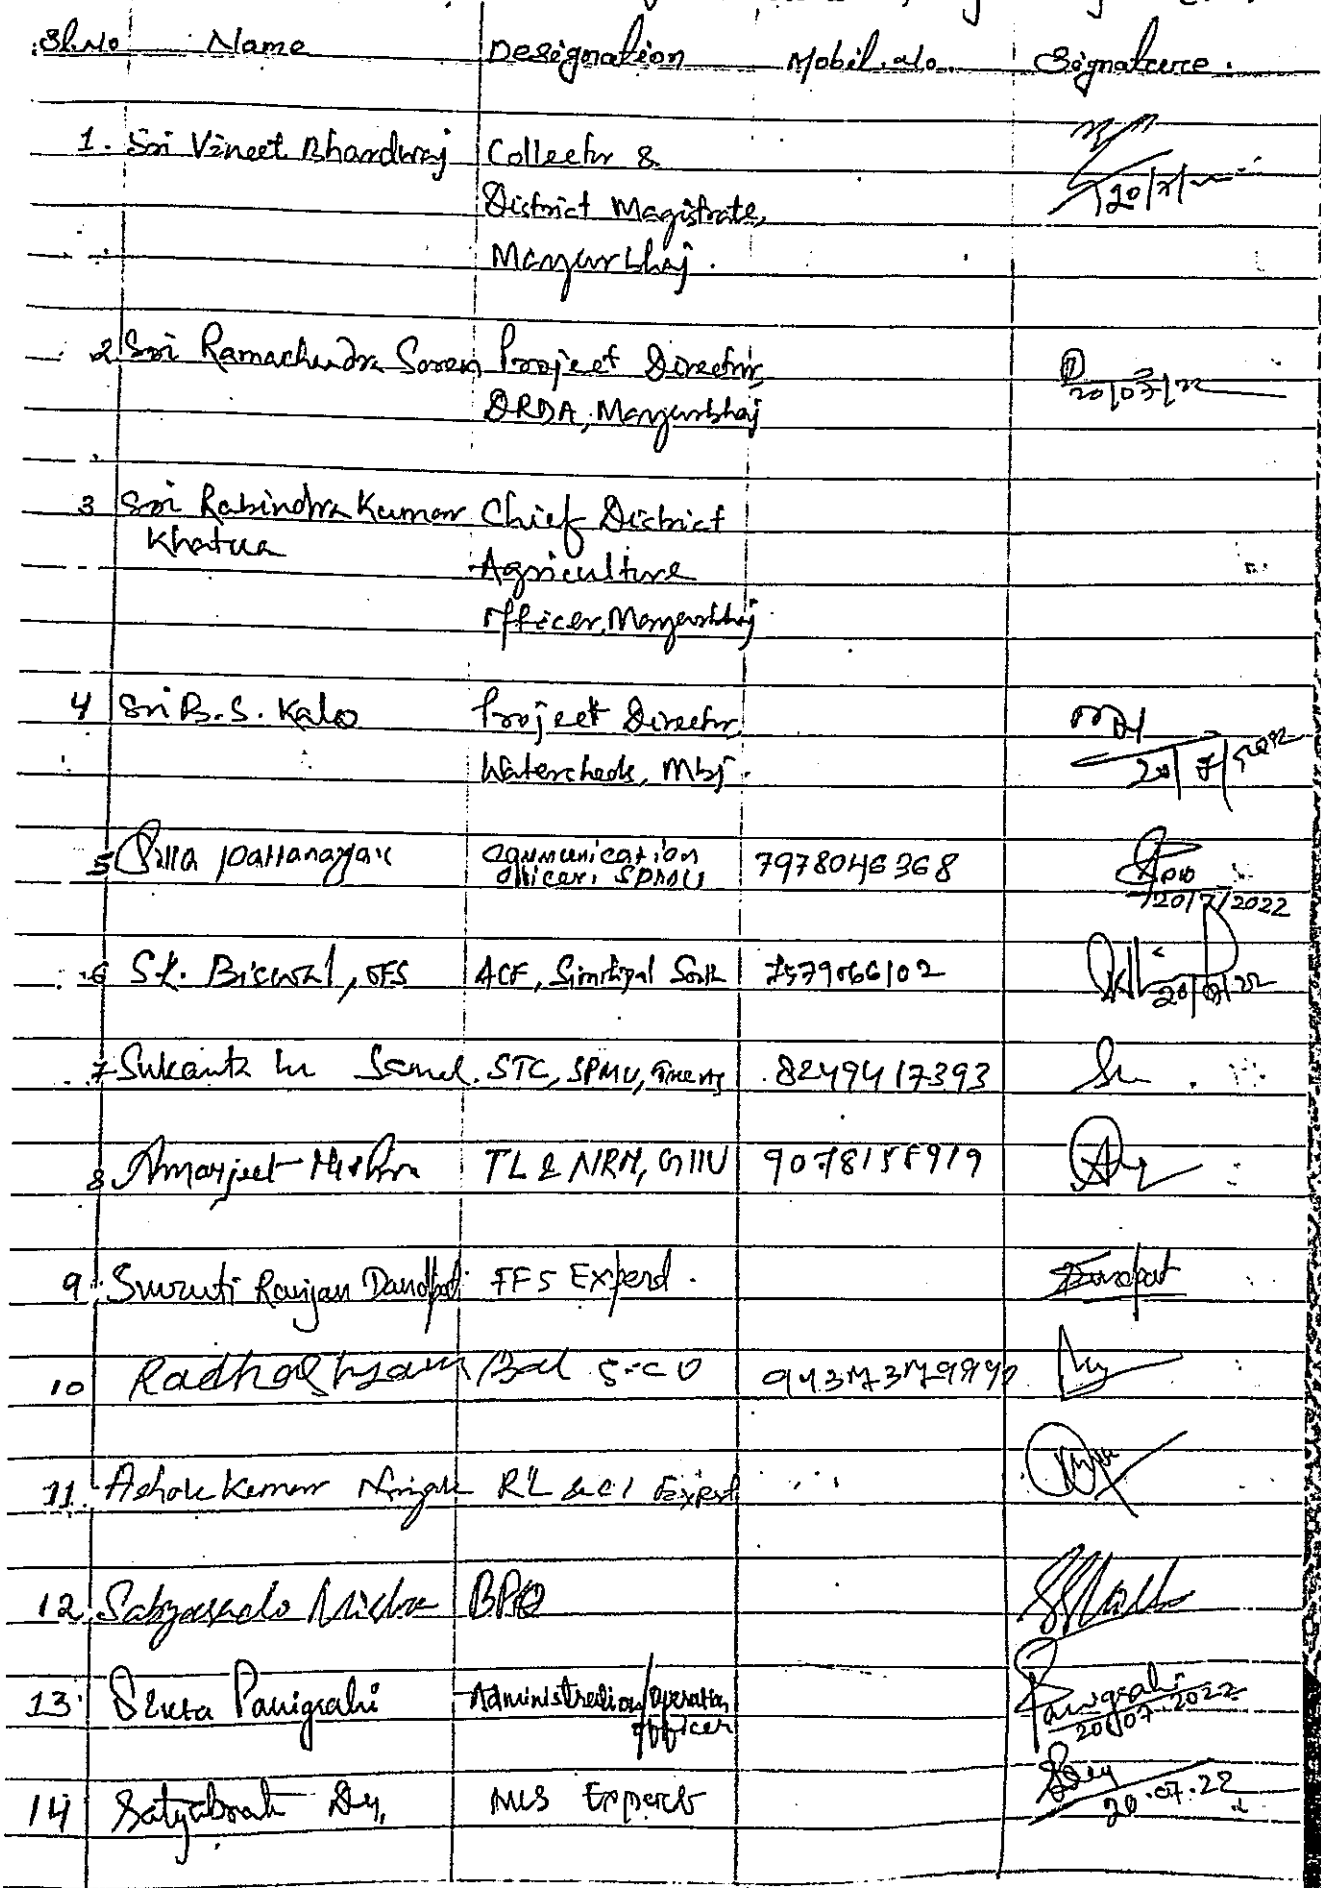 Sl.No Name Designation Mobil.No. Signature.
1. Sri Vineet Bhardwaj Collector &
District Magistrate,
Mayurbhaj.
20/7/
2 Sri Ramachandra Soren Project Director,
DRDA, Mayurbhaj
20/07/22
3 Sri Rabindra Kumar Chief District
Khatua
Agriculture
Officer, Mayurbhaj
4 Sri B.S. Kalo Project Director,
Watersheds, Mbj.
20/7/2022
5 Pattanayak Communication 7978046368
Officer, SPMU
20/7/2022
6 S.K. Biswal, OFS ACF, Similipal South 7579066102
20/07/22
7 Sukanta STC, SPMU, 8249417393
8 Amarjeet Mishra TL & NRM, GIIU 9078158919
9. Smruti Ranjan Dandpat FFS Experd.
10 Radhashyam Bal
11. Ashok Kumar Expert
12. Mishra BPO
13. Panigrahi Administration/Operation
Officer
Panigrahi
20/07.2022
14 Satyabrat Dey, MIS Expert
Dey
20.07.22